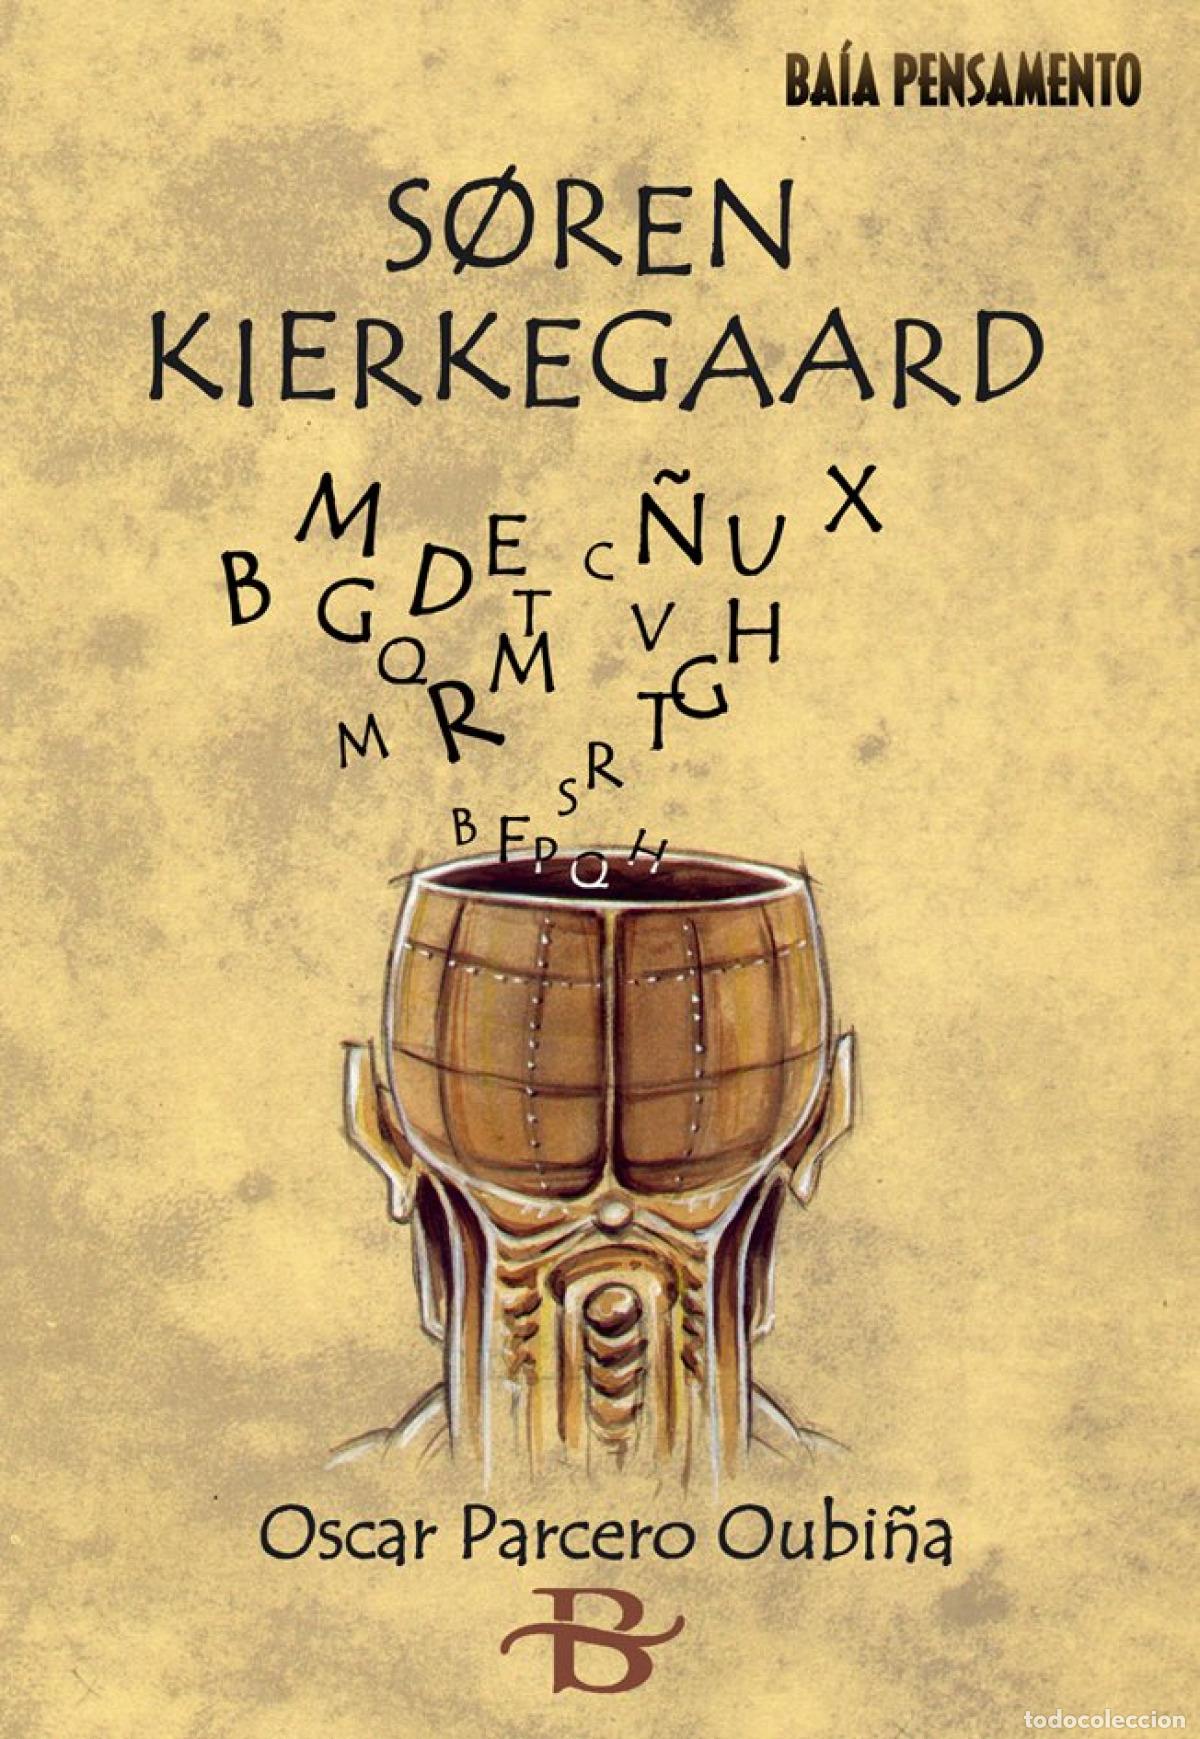 BAÍA PENSAMENTO
SØREN
KIERKEGAARD
M E C Ñ U X
B G D T V H
Q M G
M R T
S R
B F P Q H
Oscar Parcero Oubiña
B
todocoleccion